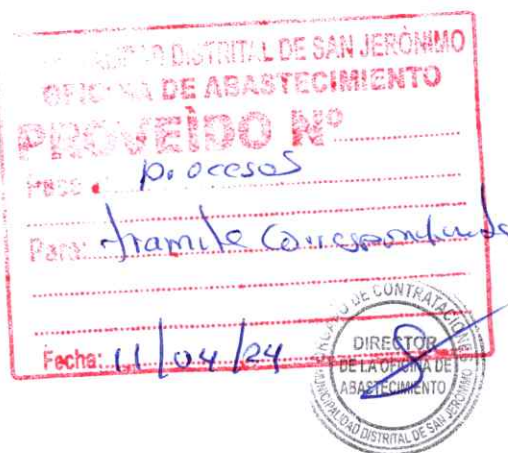 DISTRITAL DE SAN JERÓNIMO
OFICINA DE ABASTECIMIENTO
PROVEÌDO Nº
Pase: procesos
Para: tramite Correspondiente
Fecha: 11/04/24
DE CONTRATACIONES
DIRECTOR
DE LA OFICINA DE
ABASTECIMIENTO
MUNICIPALIDAD DISTRITAL DE SAN JERONIMO